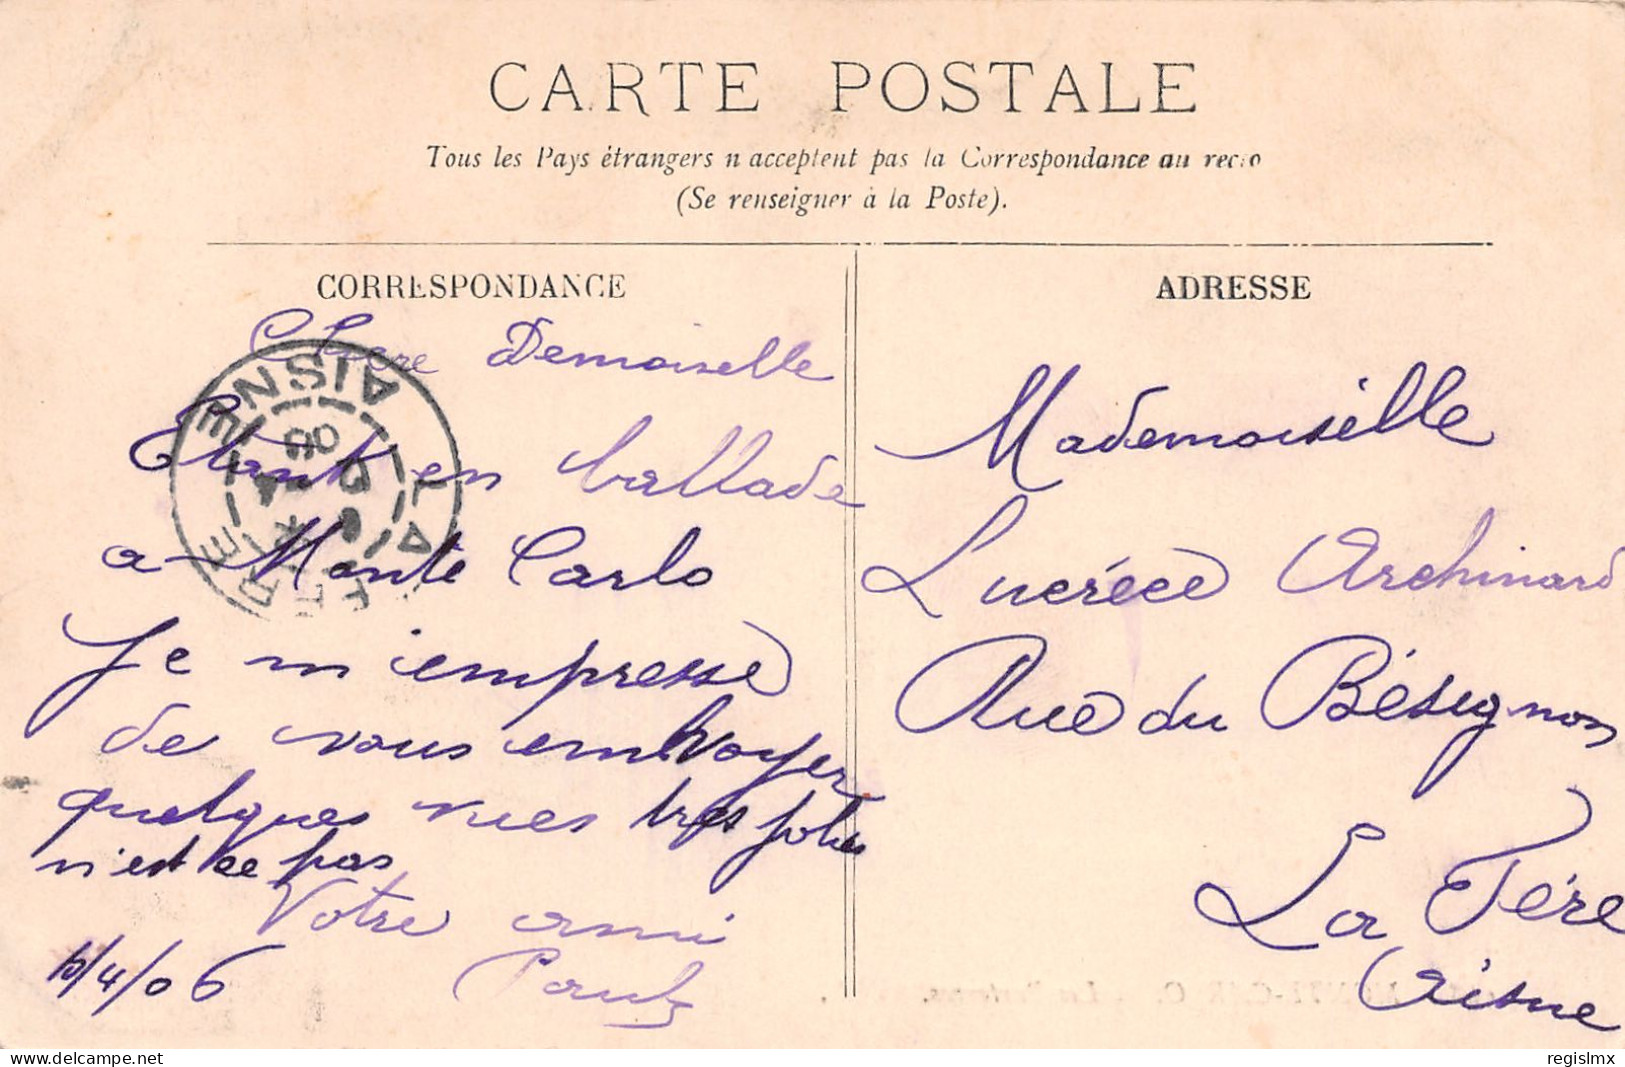 CARTE POSTALE
Tous les Pays étrangers n'acceptent pas la Correspondance au recto
(Se renseigner à la Poste).
CORRESPONDANCE
Chere Demoiselle
Etant en ballade
a Monte Carlo
Je m'empresse
de vous envoyer
quelques vues tres jolies
n'est ce pas
Votre ami
Paul
/4/06
ADRESSE
Mademoiselle
Lucréce Archinard
Rue du Bésignon
La Fére
Aisne
LA FERE
AISNE
06
regislmx